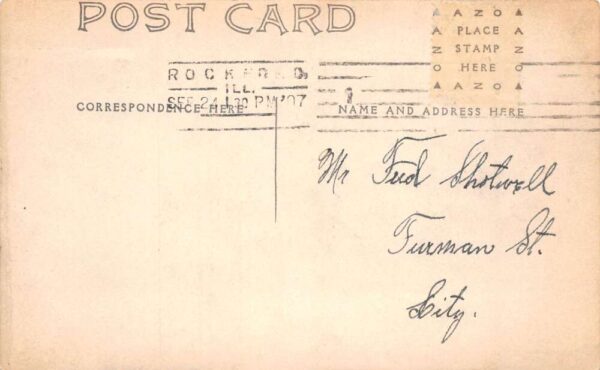 POST CARD
▲ A Z O ▲
A PLACE A
Z STAMP Z
O HERE O
▲ A Z O ▲
ROCKFORD
ILL.
SEP 24 1 30 PM '07
CORRESPONDENCE HERE
NAME AND ADDRESS HERE
Mr Fred Shotwell
Furman St.
City.